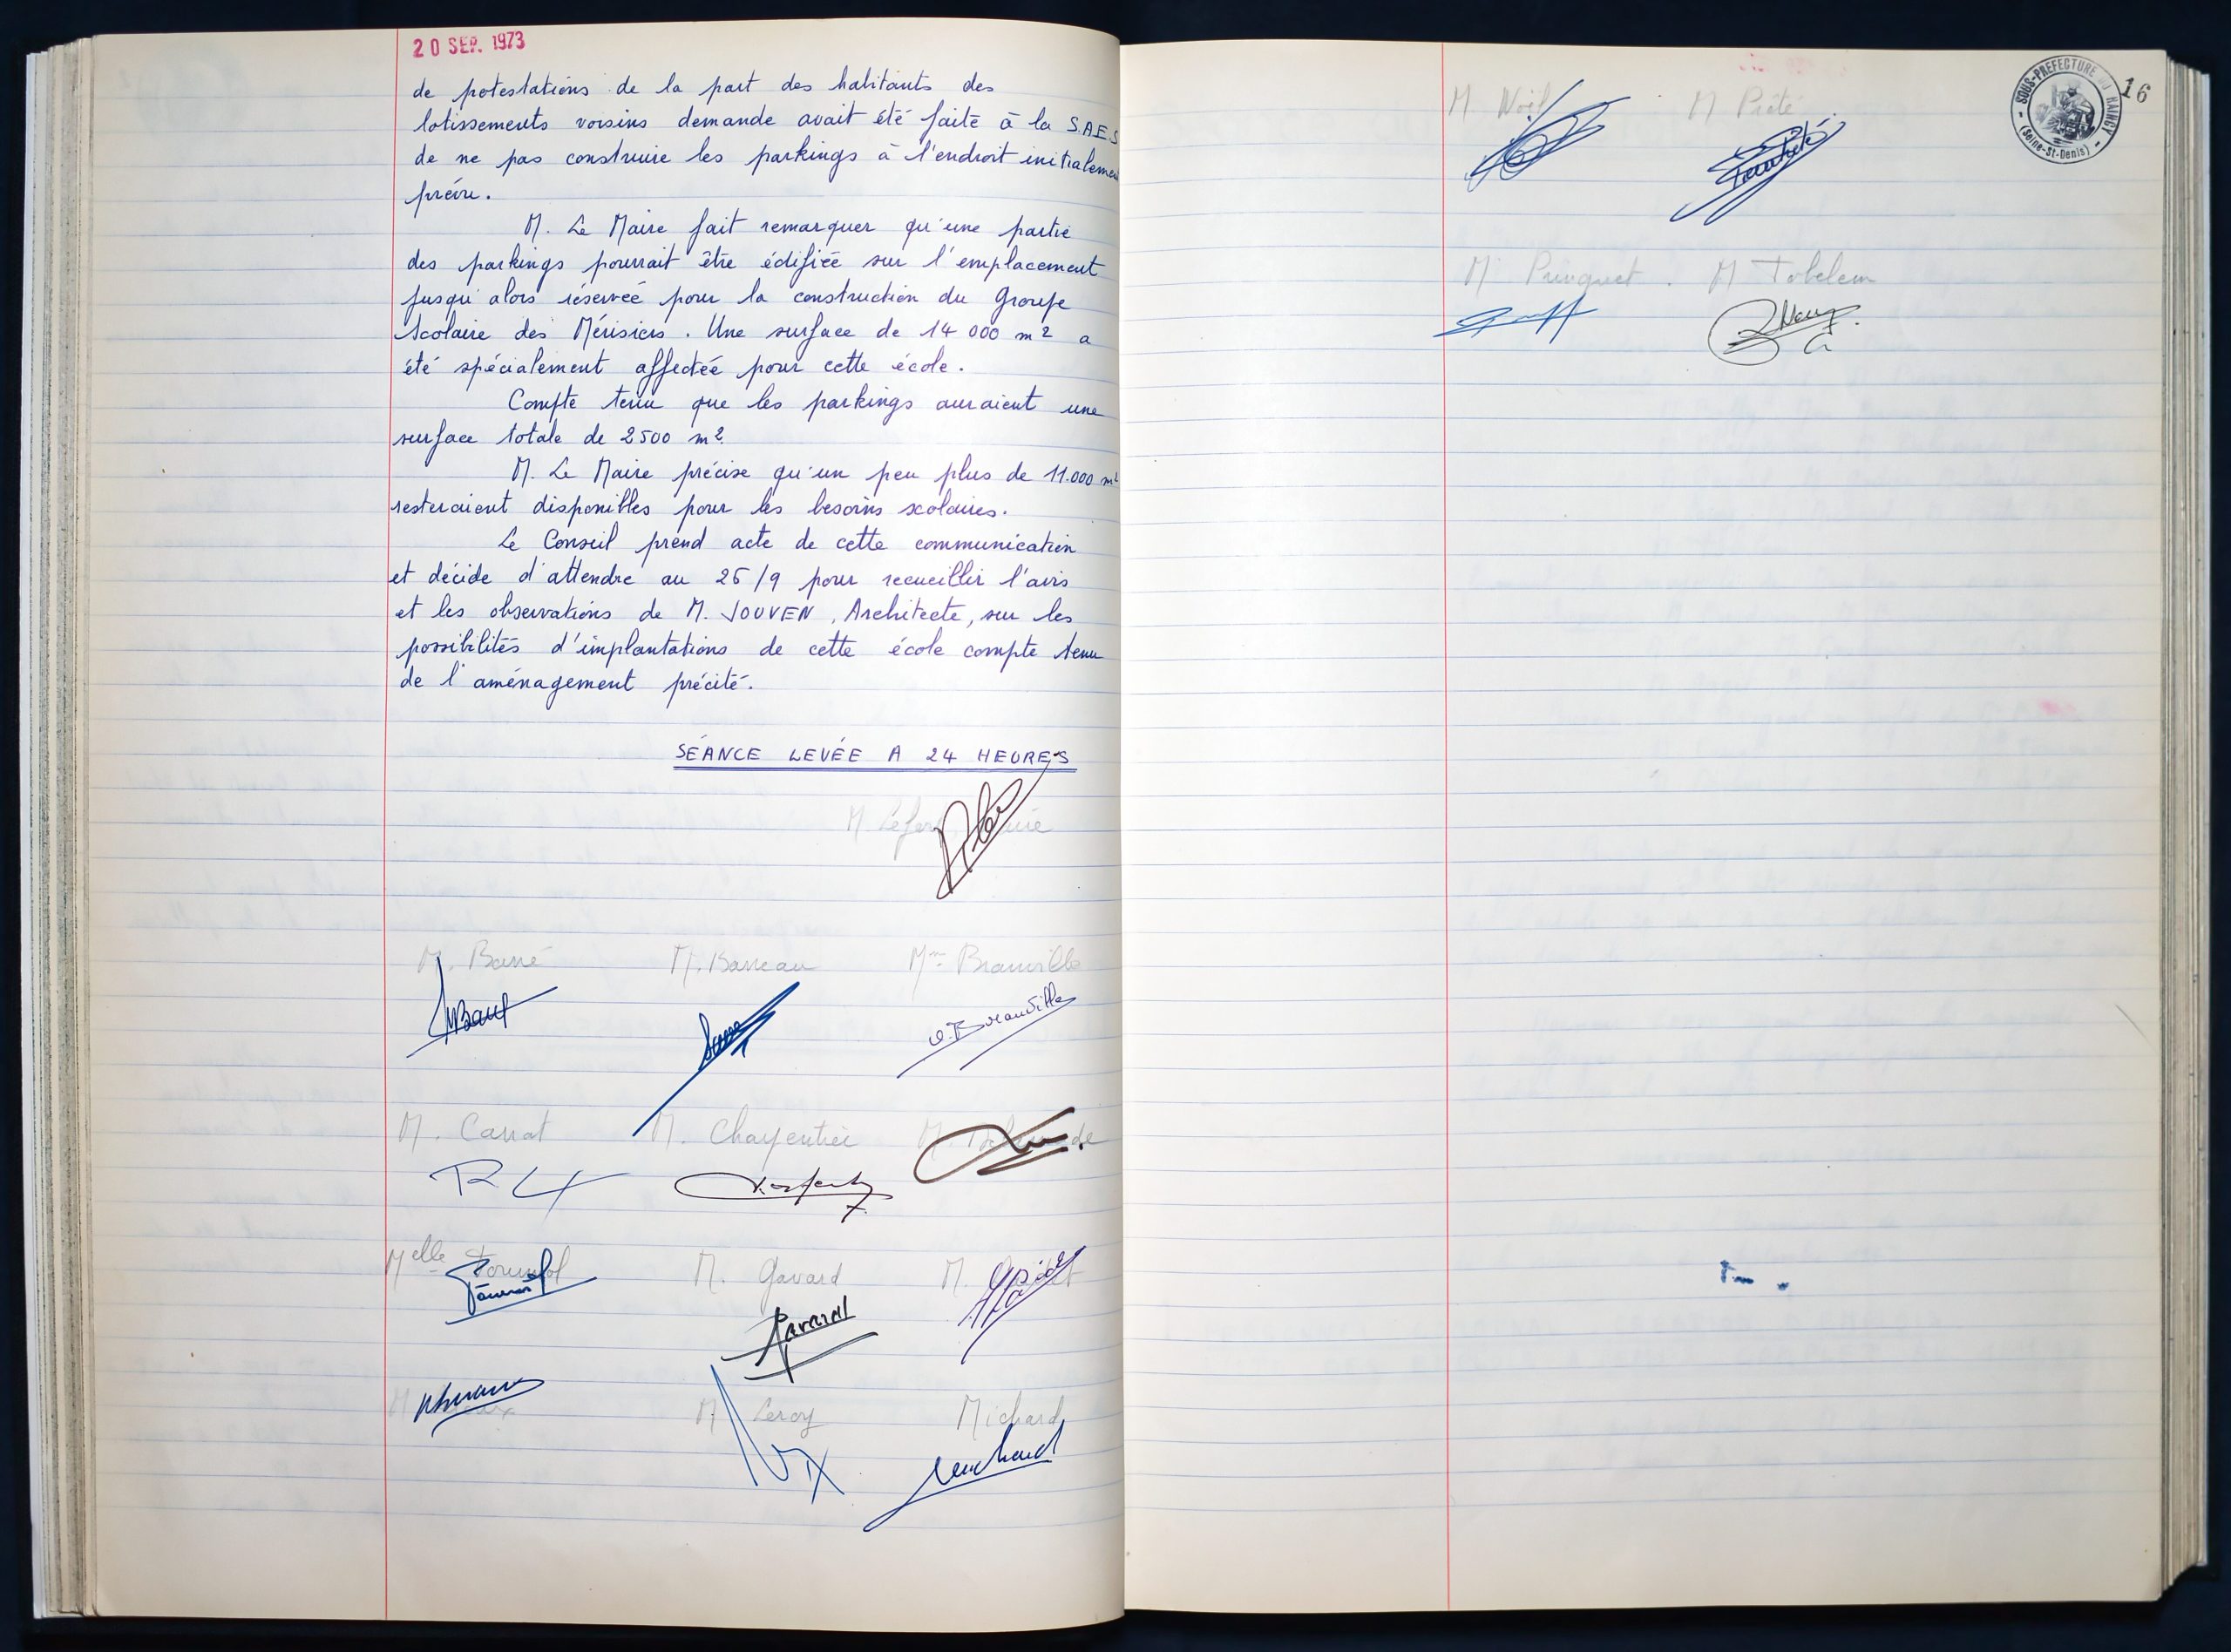 20 SEP. 1973
de potestations de la part des habitants des
lotissements voisins demande avait été faite à la S.A.E.S
de ne pas construire les parkings à l'endroit initialemen
prévu.
M. Le Maire fait remarquer qu'une partie
des parkings pourrait être édifiée sur l'emplacement
jusqu'alors réservée pour la construction du Groupe
Scolaire des Mérisiers. Une surface de 14 000 m2 a
été spécialement affectée pour cette école.
Compte tenu que les parkings auraient une
surface totale de 2500 m2.
M. Le Maire précise qu'un peu plus de 11.000 m2
resteraient disponibles pour les besoins scolaires.
Le Conseil prend acte de cette communication
et décide d'attendre au 25/9 pour recueillir l'avis
et les observations de M. JOUVEN, Architecte, sur les
possibilités d'implantations de cette école compte tenu
de l'aménagement précité.
SÉANCE LEVÉE A 24 HEURES
M.
M. Barré M. Barreau Mme Brauville
M. Carrat M. Charpentier M.
Melle M. Gavard M.
M. Leroy Michard
SOUS-PREFECTURE DU RAINCY
(Seine-St-Denis)
16
M. Noël M Piété
M M Tobelem